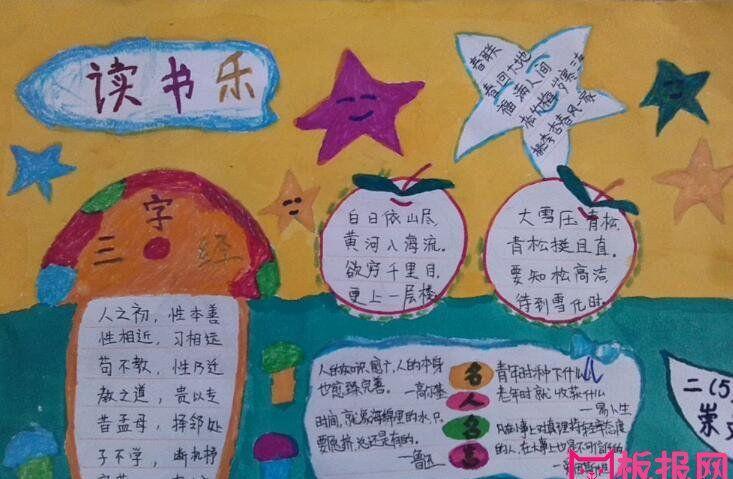 读书乐
春联
春回大地
福满人间
三字经
人之初，性本善
性相近，习相远
苟不教，性乃迁
教之道，贵以专
昔孟母，择邻处
子不学，断机杼
白日依山尽，
黄河入海流。
欲穷千里目，
更上一层楼。
大雪压青松，
青松挺且直。
要知松高洁，
待到雪化时。
名人名言
人的知识愈广，人的本身
也愈臻完善。——高尔基
时间，就象海绵里的水，只
要愿挤，总还是有的。
——鲁迅
青年时种下什么，
老年时就收获什么
——易卜生
凡在小事上对真理持轻率态度
的人，在大事上也是不可信任的
二(5)
板报网